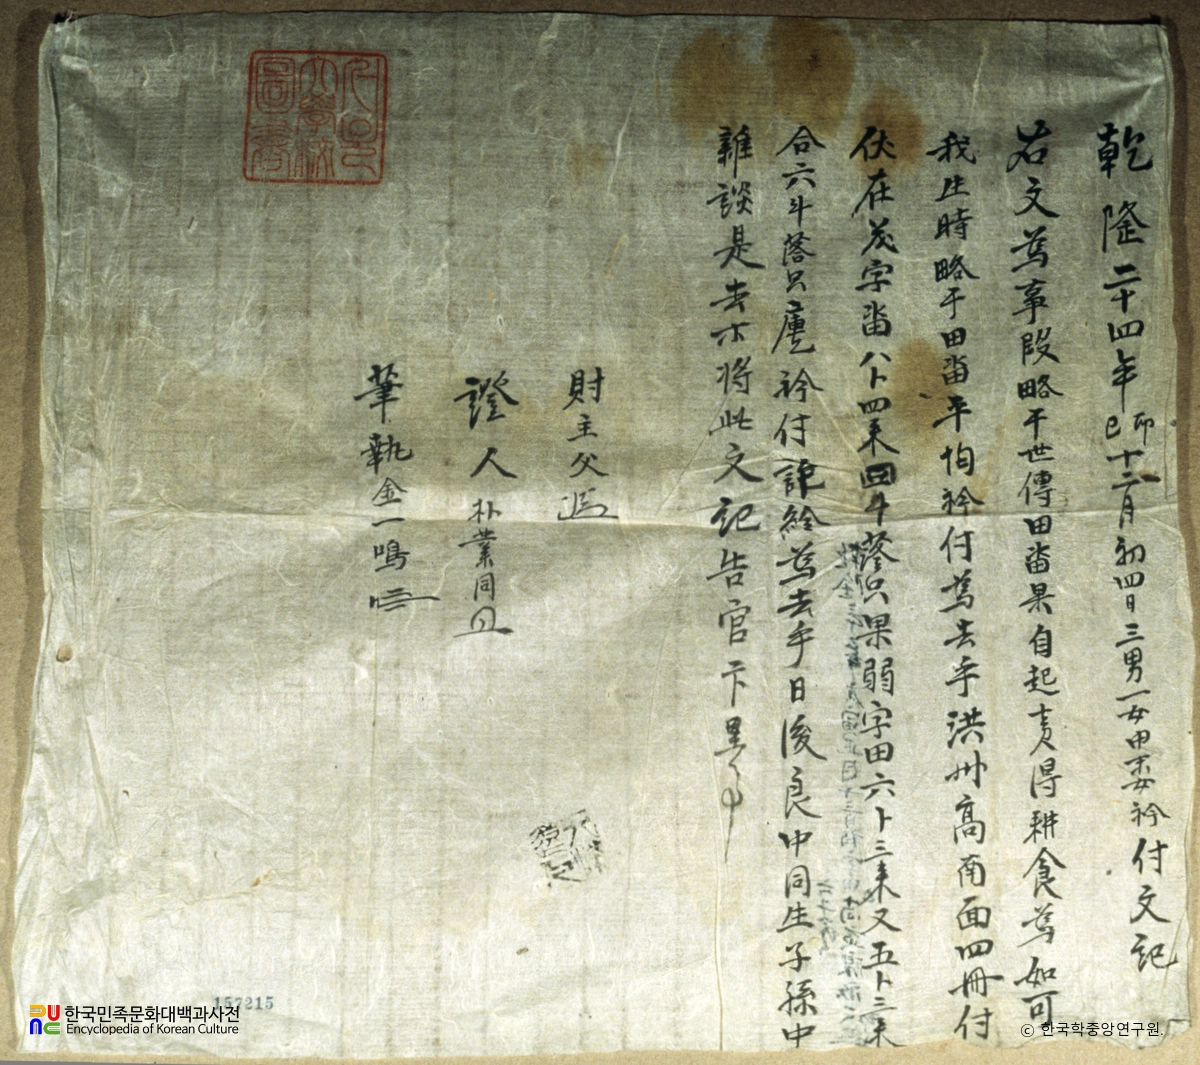 乾隆二十四年己卯十二月初四日三男一女甲委衿付文記
右文爲事段略干世傳田畓果自起買得耕食爲如可
我生時略干田畓平均衿付爲去乎洪州高南面四冊付
伏在茂字畓八卜四束四斗落只果弱字田六卜三束又五卜三束
合六斗落只廤衿付許給爲去乎日後良中同生子孫中
雜談是去等將此文記告官卞呈事
財主父
證人朴業同
筆執金一鳴
157215
한국민족문화대백과사전
Encyclopedia of Korean Culture
© 한국학중앙연구원.